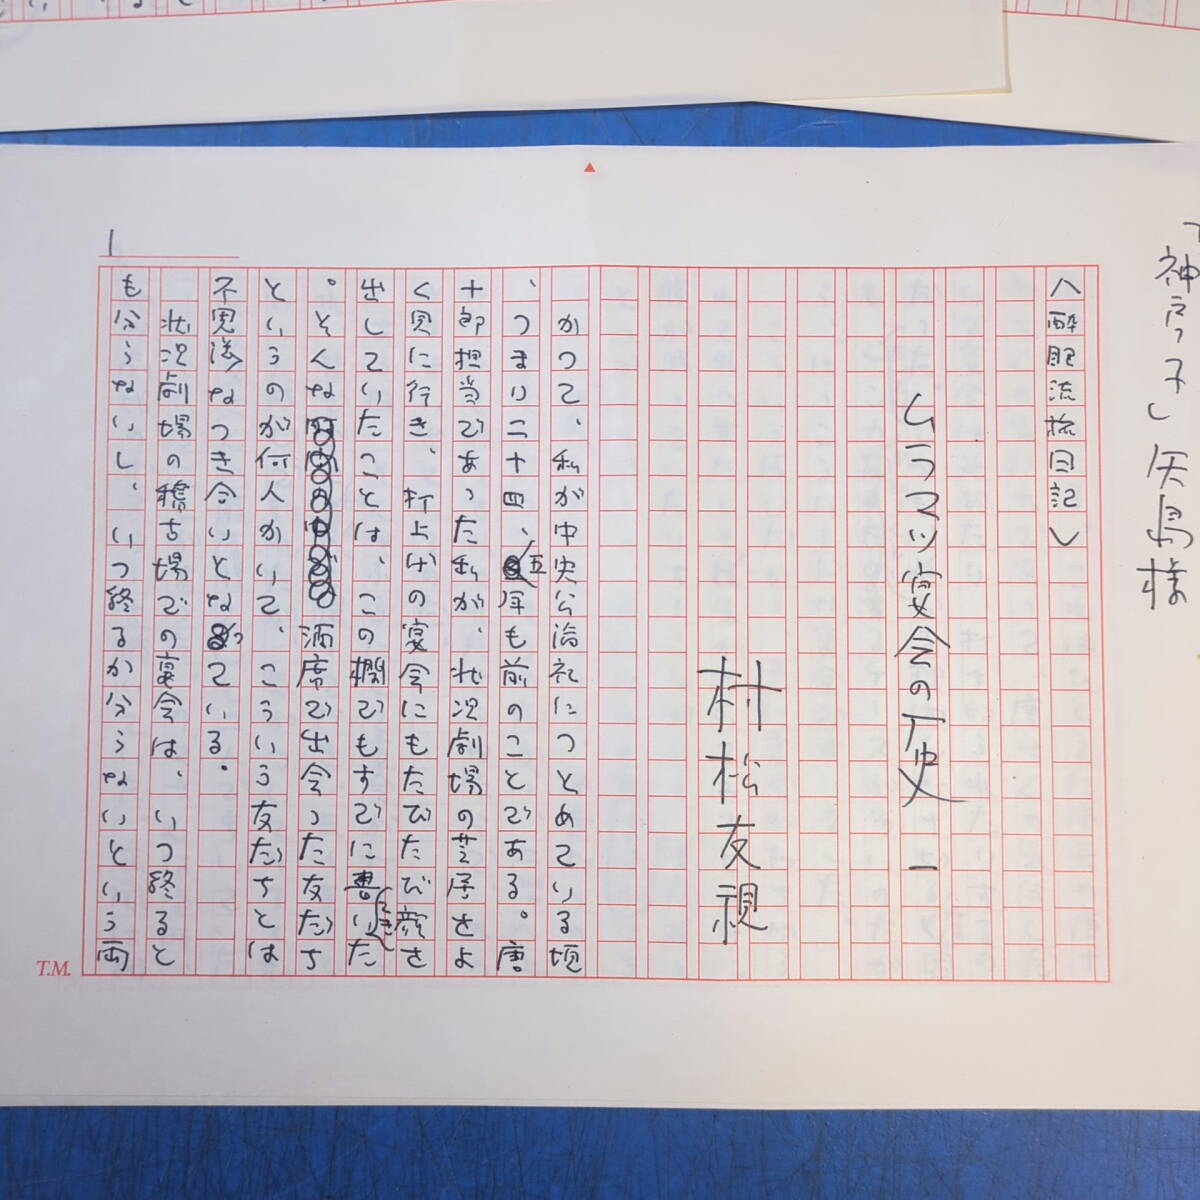 「神戸っ子」矢島様
〈酔眼流旅日記〉
ムラマツ宴会の歴史 一
村松友視
かつて、私が中央公論社につとめている頃
、つまり二十四、五年も前のことである。唐
十郎担当であった私が、状況劇場の芝居をよ
く見に行き、打上げの宴会にもたびたび顔さ
出していたことは、この欄でもすでに書いた
。そんな酒席で出会った友だち
というのが何人かいて、こういう友だちとは
不思議なつき合いとなっている。
状況劇場の稽古場での宴会は、いつ終ると
も分らないし、いつ終るか分らないという両
1
T.M.